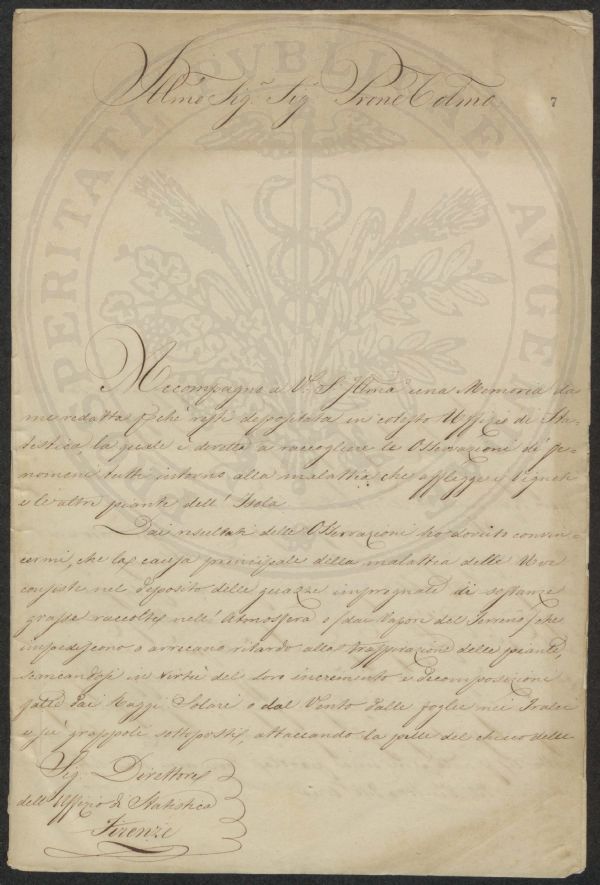 Illmo Sig.r Sig.r Prone Colmo
7
Accompagno a V.a S. Illma una Memoria da
me redatta pchè resti depositata in cotesto Uffizio di Sta-
tistica la quale è diretta a raccogliere le Osservazioni di fe-
nomeni tutti intorno alla malattia che affligge i Vigneti
e le altre piante dell' Isola.
Dai resultati delle Osservazioni ho dovuto convin-
cermi, che la causa principale della malattia delle Uve
consiste nel deposito delle guazze impregnate di sostanze
grasse raccolte nell' Atmosfera o dai Vapori del Terreno che
impediscono o arrecano ritardo alla traspirazione delle piante,
scaricandosi in virtù del loro incremento e decomposizione
fatte dai Raggi Solari o dal Vento dalle foglie nei Tralci
e su' grappoli sottoposti, attaccando la pelle del chicco delle
Sig. Direttore
dell' Uffizio di Statistica
Firenze
PERITATI PUBLICAE AUGE